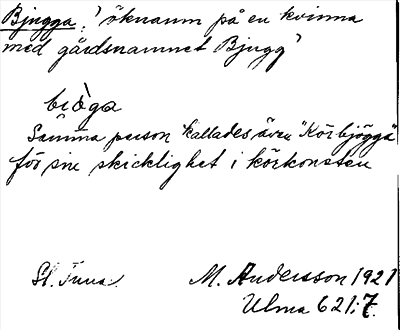 Bjugga: 'öknamn på en kvinna
med gårdsnamnet Bjugg'
biòga
Samma person kallades även "Körbjögga"
för sin skicklighet i körkonsten
St. Tuna. M. Andersson 1921
Ulma 621:7.